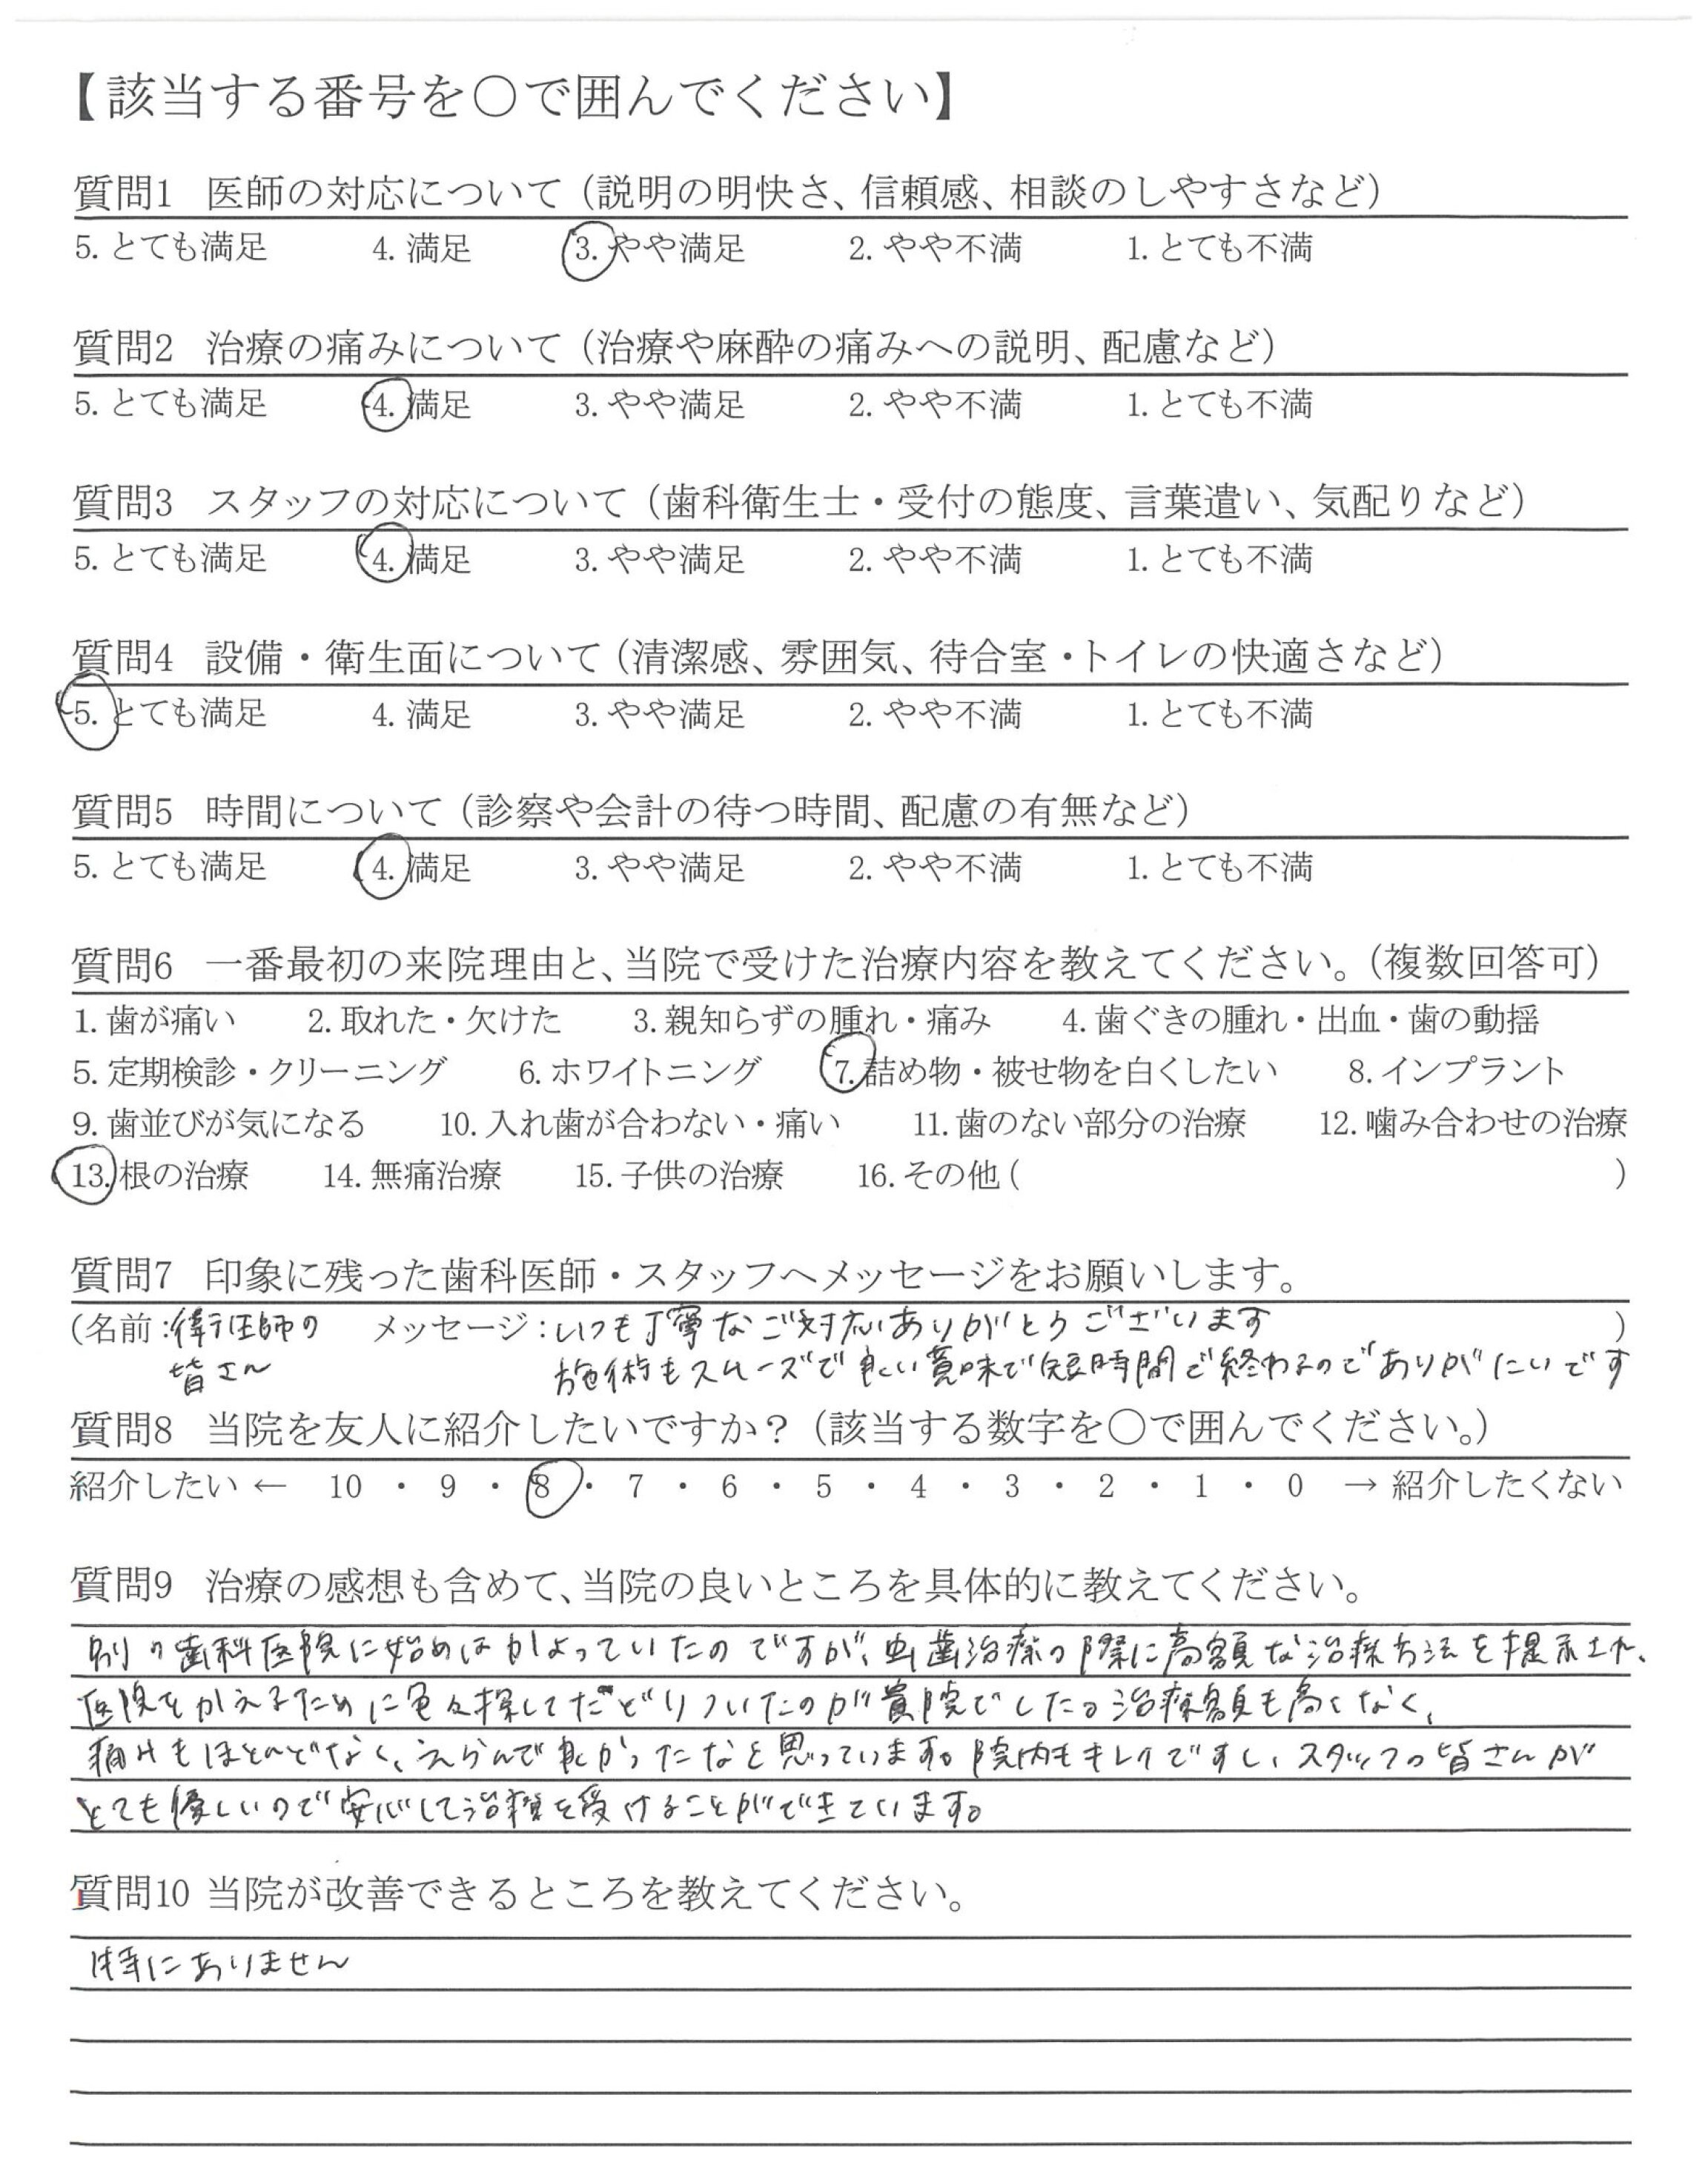 【該当する番号を〇で囲んでください】
質問1 医師の対応について（説明の明快さ、信頼感、相談のしやすさなど）
5. とても満足 4. 満足 3. やや満足 2. やや不満 1. とても不満
質問2 治療の痛みについて（治療や麻酔の痛みへの説明、配慮など）
5. とても満足 4. 満足 3. やや満足 2. やや不満 1. とても不満
質問3 スタッフの対応について（歯科衛生士・受付の態度、言葉遣い、気配りなど）
5. とても満足 4. 満足 3. やや満足 2. やや不満 1. とても不満
質問4 設備・衛生面について（清潔感、雰囲気、待合室・トイレの快適さなど）
5. とても満足 4. 満足 3. やや満足 2. やや不満 1. とても不満
質問5 時間について（診察や会計の待つ時間、配慮の有無など）
5. とても満足 4. 満足 3. やや満足 2. やや不満 1. とても不満
質問6 一番最初の来院理由と、当院で受けた治療内容を教えてください。（複数回答可）
1. 歯が痛い 2. 取れた・欠けた 3. 親知らずの腫れ・痛み 4. 歯ぐきの腫れ・出血・歯の動揺
5. 定期検診・クリーニング 6. ホワイトニング 7. 詰め物・被せ物を白くしたい 8. インプラント
9. 歯並びが気になる 10. 入れ歯が合わない・痛い 11. 歯のない部分の治療 12. 噛み合わせの治療
13. 根の治療 14. 無痛治療 15. 子供の治療 16. その他（ ）
質問7 印象に残った歯科医師・スタッフへメッセージをお願いします。
（名前：医師の メッセージ：いつも丁寧なご対応ありがとうございます ）
皆さん 施術もスムーズで良い意味で短時間で終わるのでありがたいです
質問8 当院を友人に紹介したいですか？（該当する数字を〇で囲んでください。）
紹介したい ← 10 ・ 9 ・ 8 ・ 7 ・ 6 ・ 5 ・ 4 ・ 3 ・ 2 ・ 1 ・ 0 → 紹介したくない
質問9 治療の感想も含めて、当院の良いところを具体的に教えてください。
別の歯科医院に始めはかよっていたのですが、虫歯治療の際に高額な治療方法を提示され、
医院をかえるために色々探してたどりついたのが貴院でした。治療額も高くなく、
痛みもほとんどなく、えらんで良かったなと思っています。院内もキレイですし、スタッフの皆さんが
とても優しいので安心して治療を受けることができています。
質問10 当院が改善できるところを教えてください。
特にありません